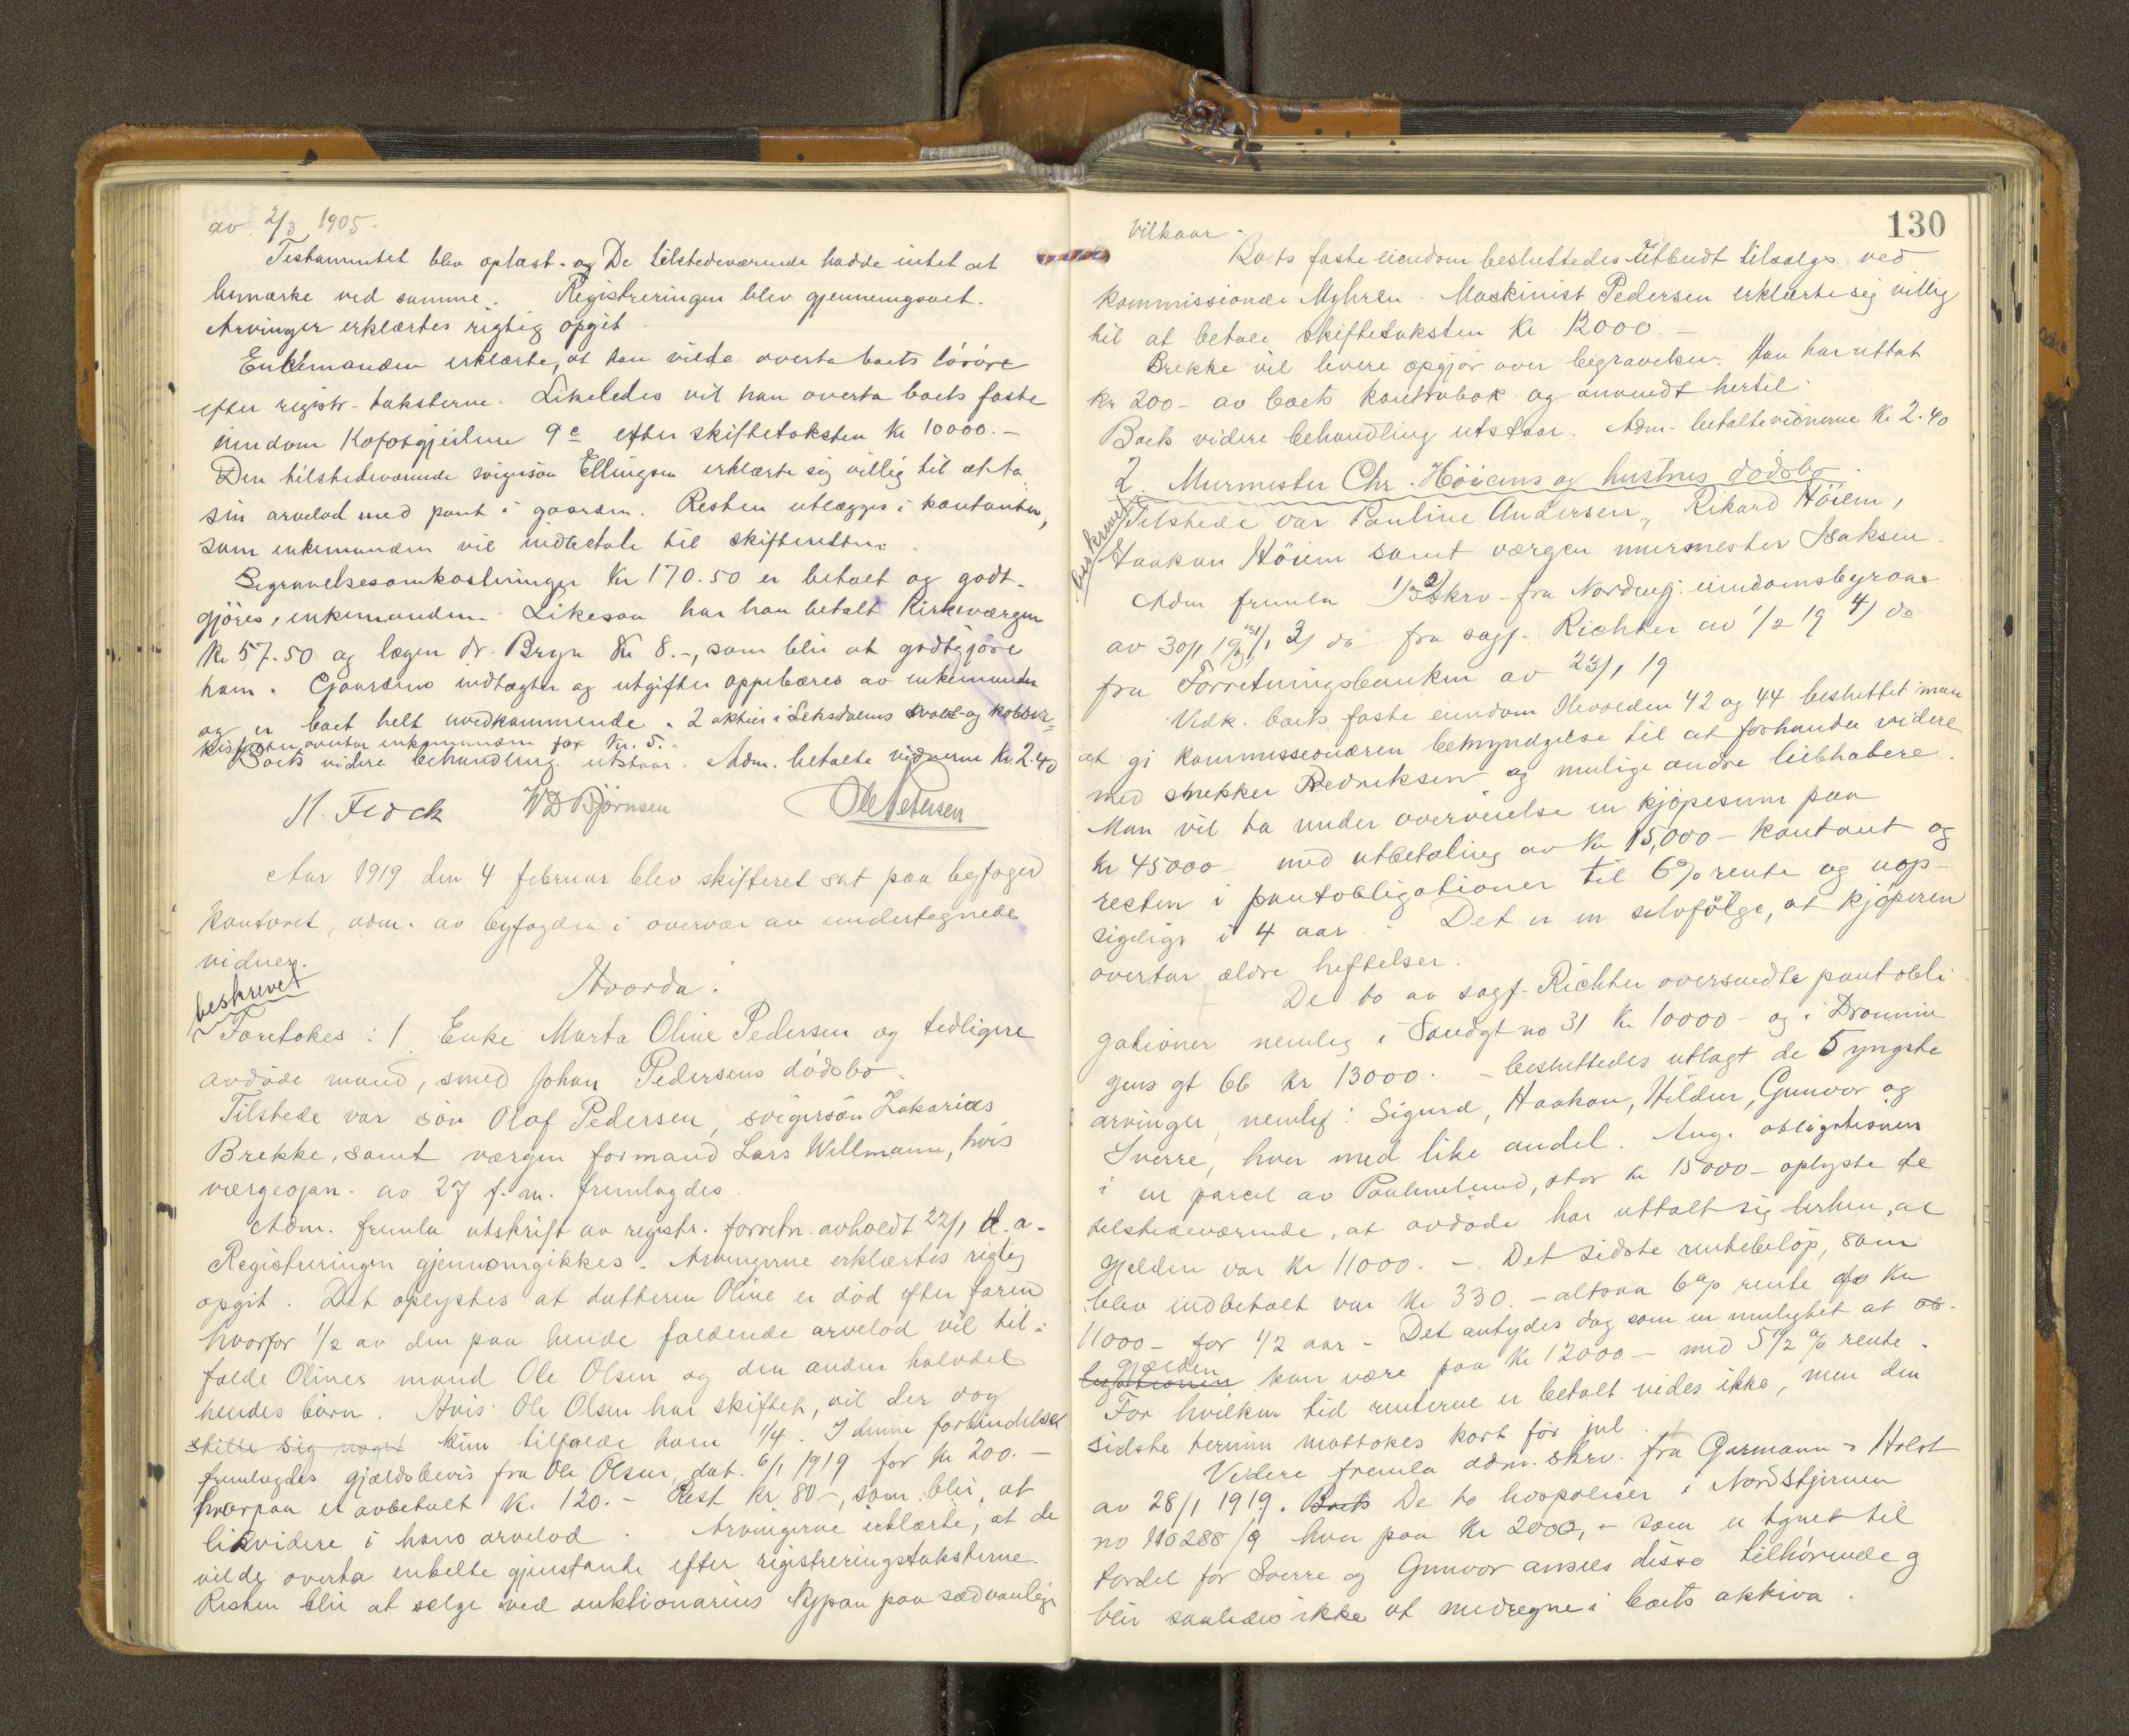 av 2/3 1905.
Testamentet blev oplæst. og De tilstedeværende hadde intet at
bemærke ved samme. Registreringen blev gjennemgaaet.
Arvinger erklærtes rigtig opgit.
Enkemanden erklærte, at han vilde overta boets lösöre
efter registr-taksterne. Likeledes vil han overta boets faste
eiendom Kofotgjeilene 9c efter skiftetaksten Kr 10000.-
Den tilstedeværende svigersön Ellingsen erklærte sig villig til at ta
sin arvelod med pant i gaarden. Resten utlægges i kontanter,
som enkemanden vil indbetale til skifteretten.
Begravelsesomkostninger Kr 170.50 er betalt og godt-
gjöres enkemanden. Likesaa har han betalt Kirkeværgen
Kr 57.50 og lægen dr. Bryn Kr 8.-, som blir at godtgjöre
ham. Gaardens indtægter og utgifter oppebæres av enkemanden
og er boet helt uvedkommende. 2 aktier i Leksdalens
overtar enkemanden for Kr. 5.-
Boets videre behandling utstaar. Adm. betalte vidnerne Kr. 2.40
H. Flock W D Bjørnsen Ole Petersen
Aar 1919 den 4 februar blev skifteret sat paa byfoged
kontoret, adm. av byfogden i overvær av undertegnede
vidner.
Hvorda:
beskrevet
Foretokes: 1. Enke Marta Oline Pedersen og tidligere
avdöde mand, smed Johan Pedersens dödsbo.
Tilstede var sön Olaf Pedersen, svigersön Zakarias
Brekke, samt værgen formand Lars Willmann, hvis
værgeopn. av 27 f. m. fremlagdes.
Adm. fremla utskrift av registr. forretn. avholdt 22/1 d. a.
Registreringen gjennemgikkes. Arvingerne erklærtes rigtig
opgit. Det oplystes at datteren Oline er död efter faren
hvorfor 1/2 av den paa hende faldende arvelod vil til-
falde Olines mand Ole Olsen og den anden halvdel
hendes börn. Hvis Ole Olsen har skiftet, vil der dog
stille sig noget kun tilfalde ham 1/4. I denne forbindelse
fremlagdes gjældsbevis fra Ole Olsen, dat. 6/1 1919 for Kr 200.-
hvorpaa er avbetalt Kr. 120.- Rest Kr 80-, som blir at
likvidere i hans arvelod. Arvingerne erklærte, at de
vilde overta enkelte gjenstande efter registreringstaksterne.
Resten blir at sælge ved auktionarius Nypan paa sædvanlige
130
vilkaar.
Boets faste eiendom besluttedes utbudt tilsalgs ved
kommissionær Myhren. Maskinist Pedersen erklærte sig villig
til at betale skiftetaksten Kr 12000.-
Brekke vil levere opgjör over begravelsen. Han har uttat
Kr 200- av boets kontrabok og anvendt hertil.
Boets videre behandling utstaar. Adm. betalte vidnerne Kr 2.40
2. Murmester Chr. Höiems og hustrus dödsbo.
beskrevet
Tilstede var Pauline Andersen, Rikard Höiem,
Haakon Höiem samt værgen murmester Isaksen.
Adm fremla 1/ skrv. fra Nordenfj. eiendomsbyraa
av 30/1 19 3/ do fra sagf. Richter av 1/2 19 4/ do
fra Forretningsbanken av 23/1 19
Vedk. boets faste eiendom 42 og 44 besluttet man
at gi kommissionæren bemyndigelse til at forhandle videre
med snekker Fredriksen og mulige andre liebhabere.
Man vil ta under overveielse en kjöpesum paa
Kr 45000 med utbetaling av Kr 15,000- kontant og
resten i pantobligationer til 6% rente og uop-
sigelige i 4 aar. Det er en selvfölge, at kjöperen
overtar ældre heftelser.
De to av sagf. Richter oversendte pantobli
gationer nemlig i Sandgt no 31 Kr 10000- og i Dronnin
gens gt 66 Kr 13000.- besluttedes utlagt de 5 yngste
arvinger, nemlig: Sigurd, Haakon, Hildur, Gunvor og
Sverre, hver med like andel. Ang. obligationen
i en parcel av Paulinelund, stor Kr 15000- oplyste de
tilstedeværende, at avdöde har uttalt sig derhen, at
gjelden var Kr 11000.- Det sidste rentebelöp, som
blev indbetalt var Kr 330.- altsaa 6% rente av Kr
11000- for 1/2 aar. Det antydes dog som en mulighet at ob-
ligationen gjælden kan være paa Kr 12000- med 5 1/2 % rente.
For hvilken tid renterne er betalt vides ikke, men den
sidste termin mottokes kort för jul.
Videre fremla adm. skrv. fra Garmann & Holst
av 28/1 1919. Boets De to livspoliser i Nordstjernen
no 110288/9 hver paa Kr 2000,- som er tegnet til
fordel for Sverre og Gunvor ansees disse tilhörende og
blir saaledes ikke at medregne i boets aktiva.